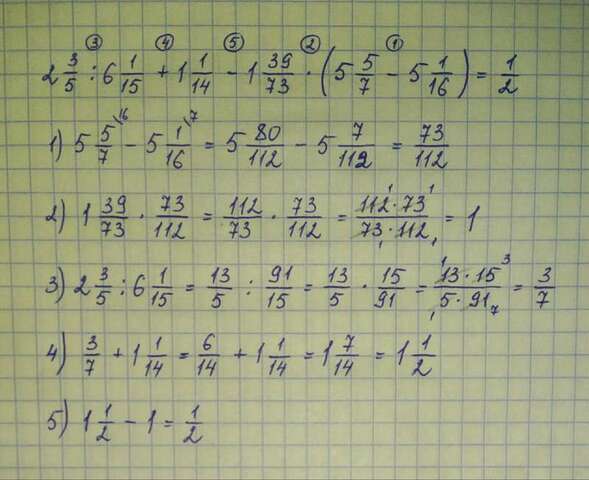 ③ ④ ⑤ ② ①
2 3/5 : 6 1/15 + 1 1/14 - 1 39/73 · (5 5/7 - 5 1/16) = 1/2
1) 5 5/7 \16 - 5 1/16 \7 = 5 80/112 - 5 7/112 = 73/112
2) 1 39/73 · 73/112 = 112/73 · 73/112 = 112 1 · 73 1 / 73 1 · 112 1 = 1
3) 2 3/5 : 6 1/15 = 13/5 : 91/15 = 13/5 · 15/91 = 1 13 · 15 3 / 1 5 · 91 7 = 3/7
4) 3/7 + 1 1/14 = 6/14 + 1 1/14 = 1 7/14 = 1 1/2
5) 1 1/2 - 1 = 1/2